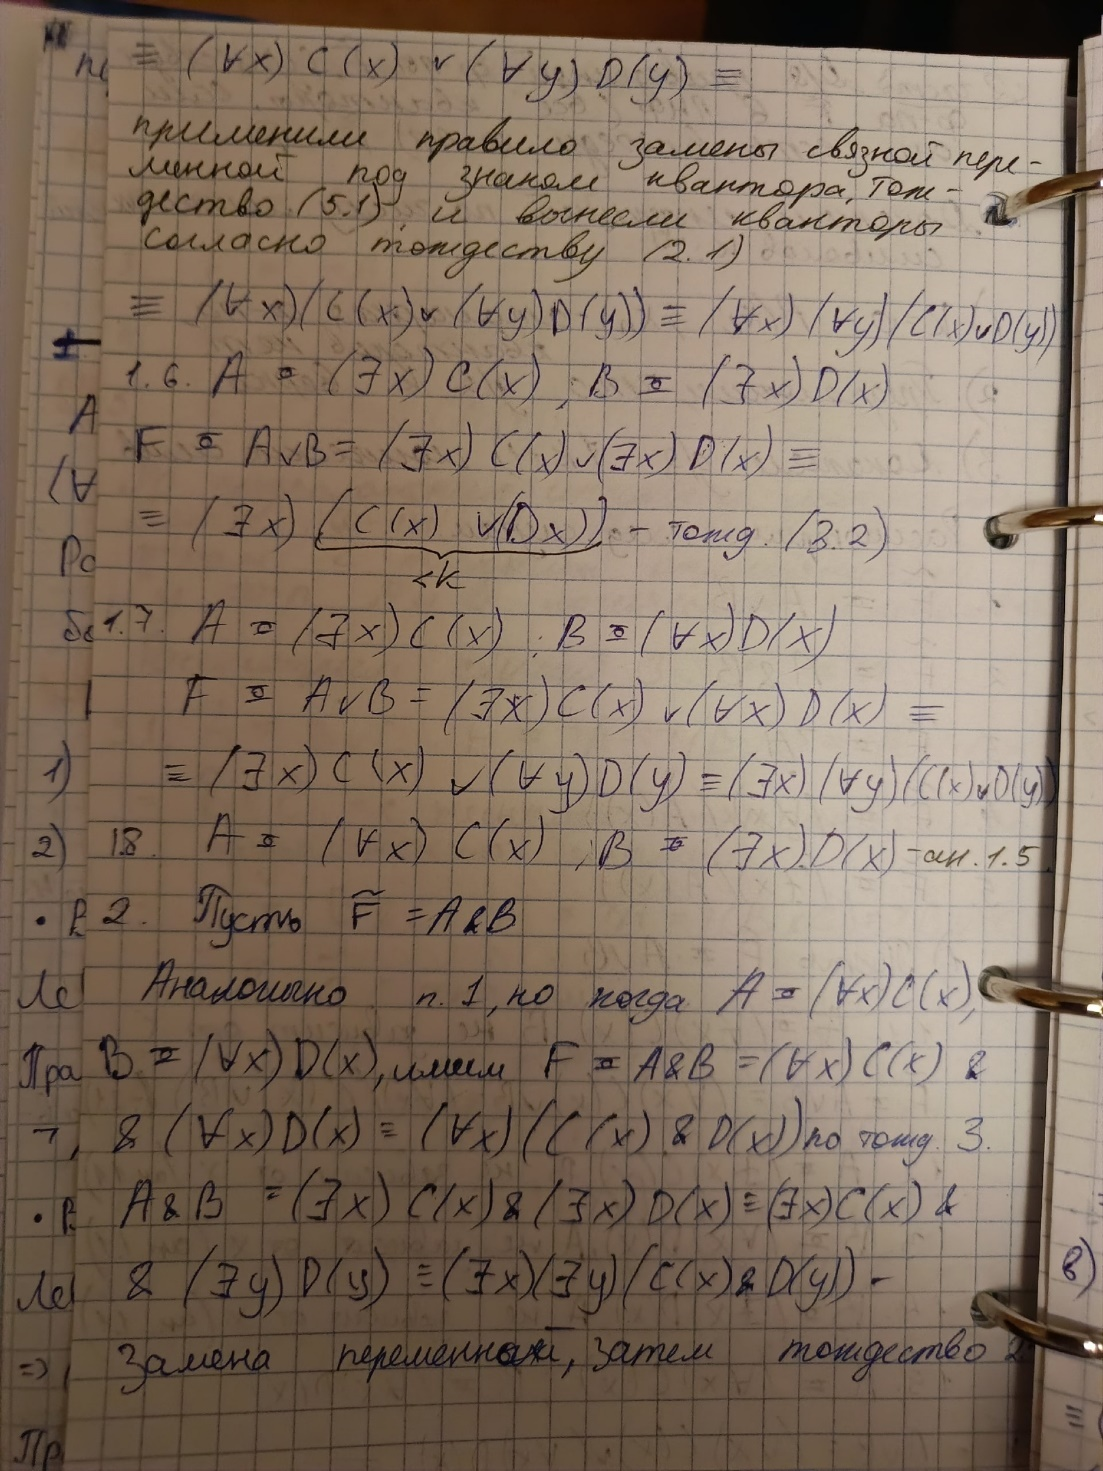 ≡ (∀x) C(x) ∨ (∀y) D(y) ≡
применили правило замены связной пере-
менной под знаком квантора, тож-
дество (5.1) и вынесли кванторы
согласно тождеству (2.1)
≡ (∀x)(C(x)∨(∀y)D(y)) ≡ (∀x)(∀y)(C(x)∨D(y))
1.6. A = (∃x) C(x), B = (∃x) D(x)
F = A∨B = (∃x) C(x)∨(∃x) D(x) ≡
≡ (∃x) (C(x) ∨(Dx)) - тожд. (3.2)
<k
1.7. A = (∃x) C(x), B = (∀x)D(x)
F = A∨B = (∃x) C(x) ∨(∀x) D(x) ≡
1) ≡ (∃x) C(x) ∨(∀y)D(y) ≡ (∃x)(∀y)(C(x)∨D(y))
2) 18. A = (∀x) C(x), B = (∃x) D(x) - ан. 1.5
2. Пусть F̃ = A&B
Аналогично п.1, но когда A = (∀x)C(x),
B = (∀x) D(x), имеем F = A&B = (∀x) C(x) &
& (∀x) D(x) ≡ (∀x) (C(x) & D(x)) по тожд. 3.
A&B = (∃x) C(x)&(∃x) D(x) ≡ (∃x)C(x) &
& (∃y) D(y) ≡ (∃x)(∃y)(C(x)&D(y)) -
в)
замена переменной, затем тождество 2